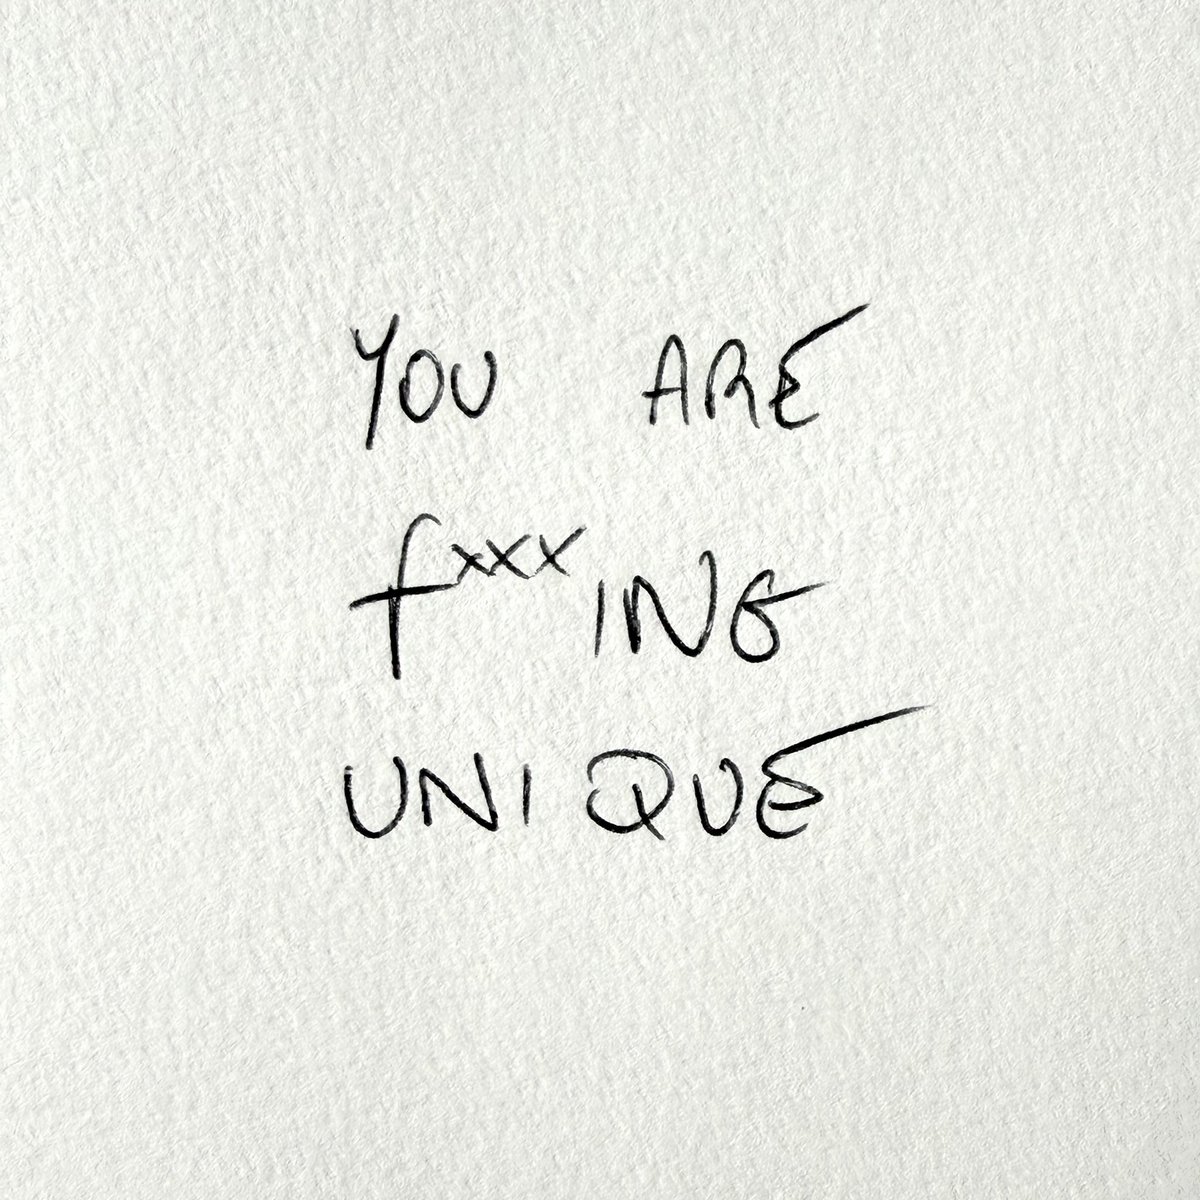 YOU ARE
fxxxING
UNIQUE